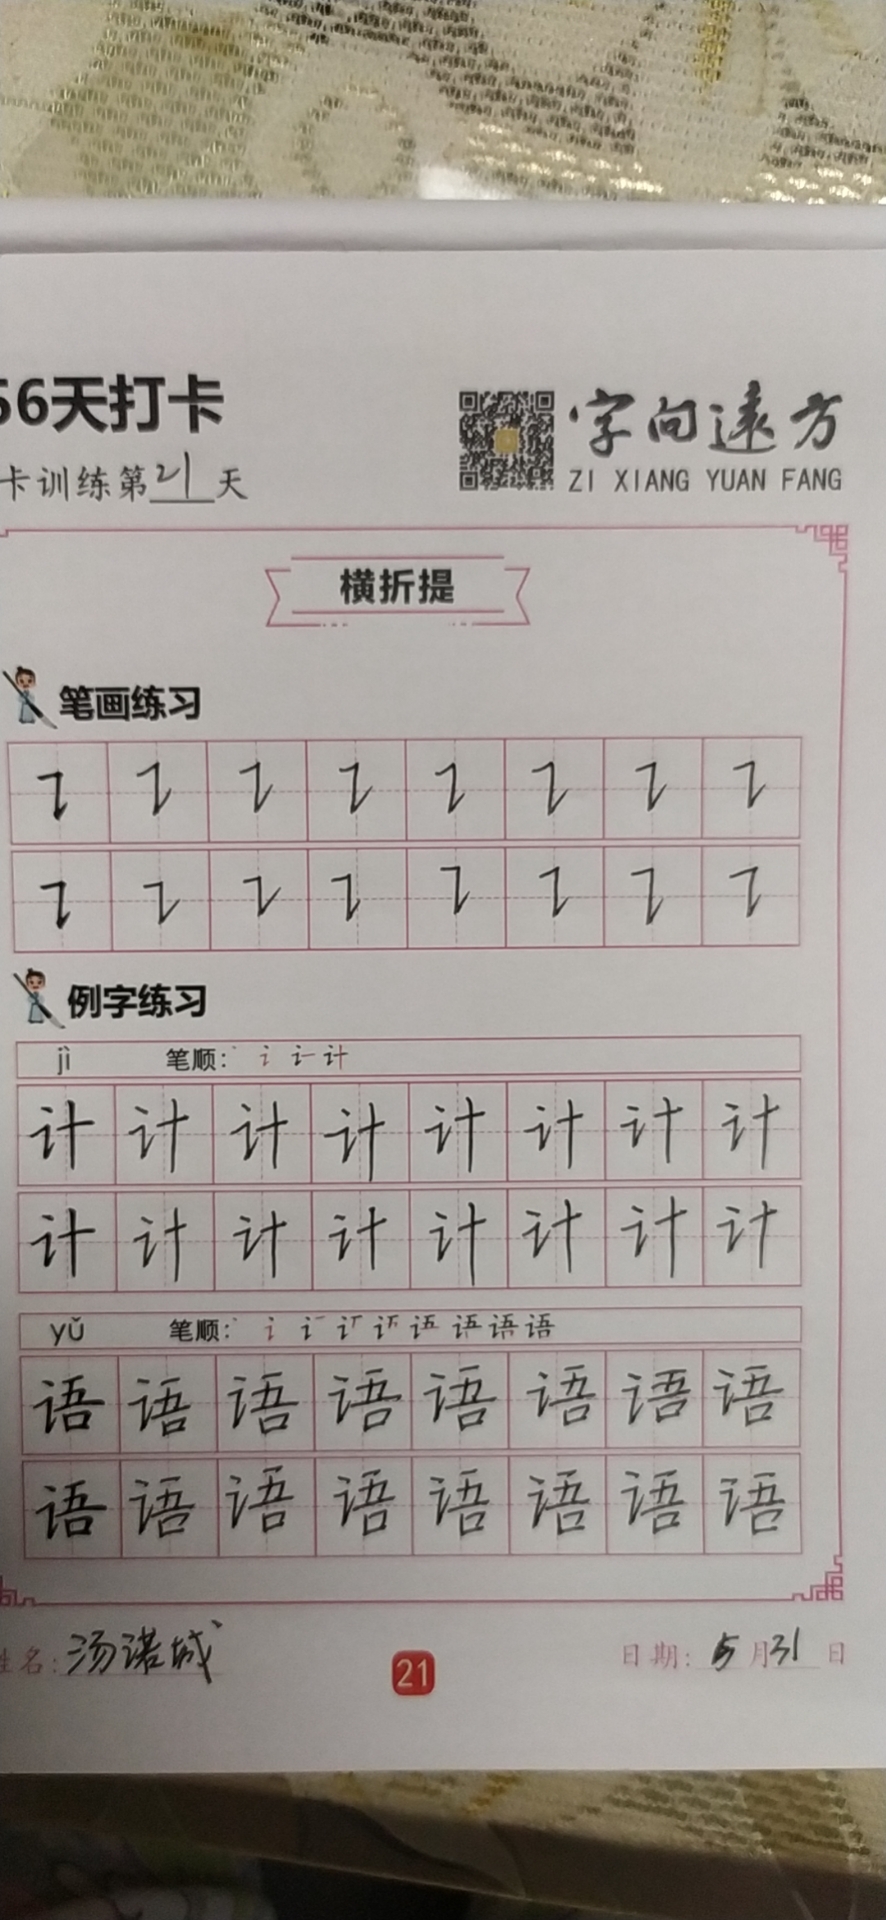 56天打卡
字向遠方
ZI XIANG YUAN FANG
卡训练第21天
横折提
笔画练习
例字练习
jì 笔顺:
计计计计计计计计
计计计计计计计计
yǔ 笔顺:
语语语语语语语语
语语语语语语语语
姓名:汤诺城
21
日期:5月31日